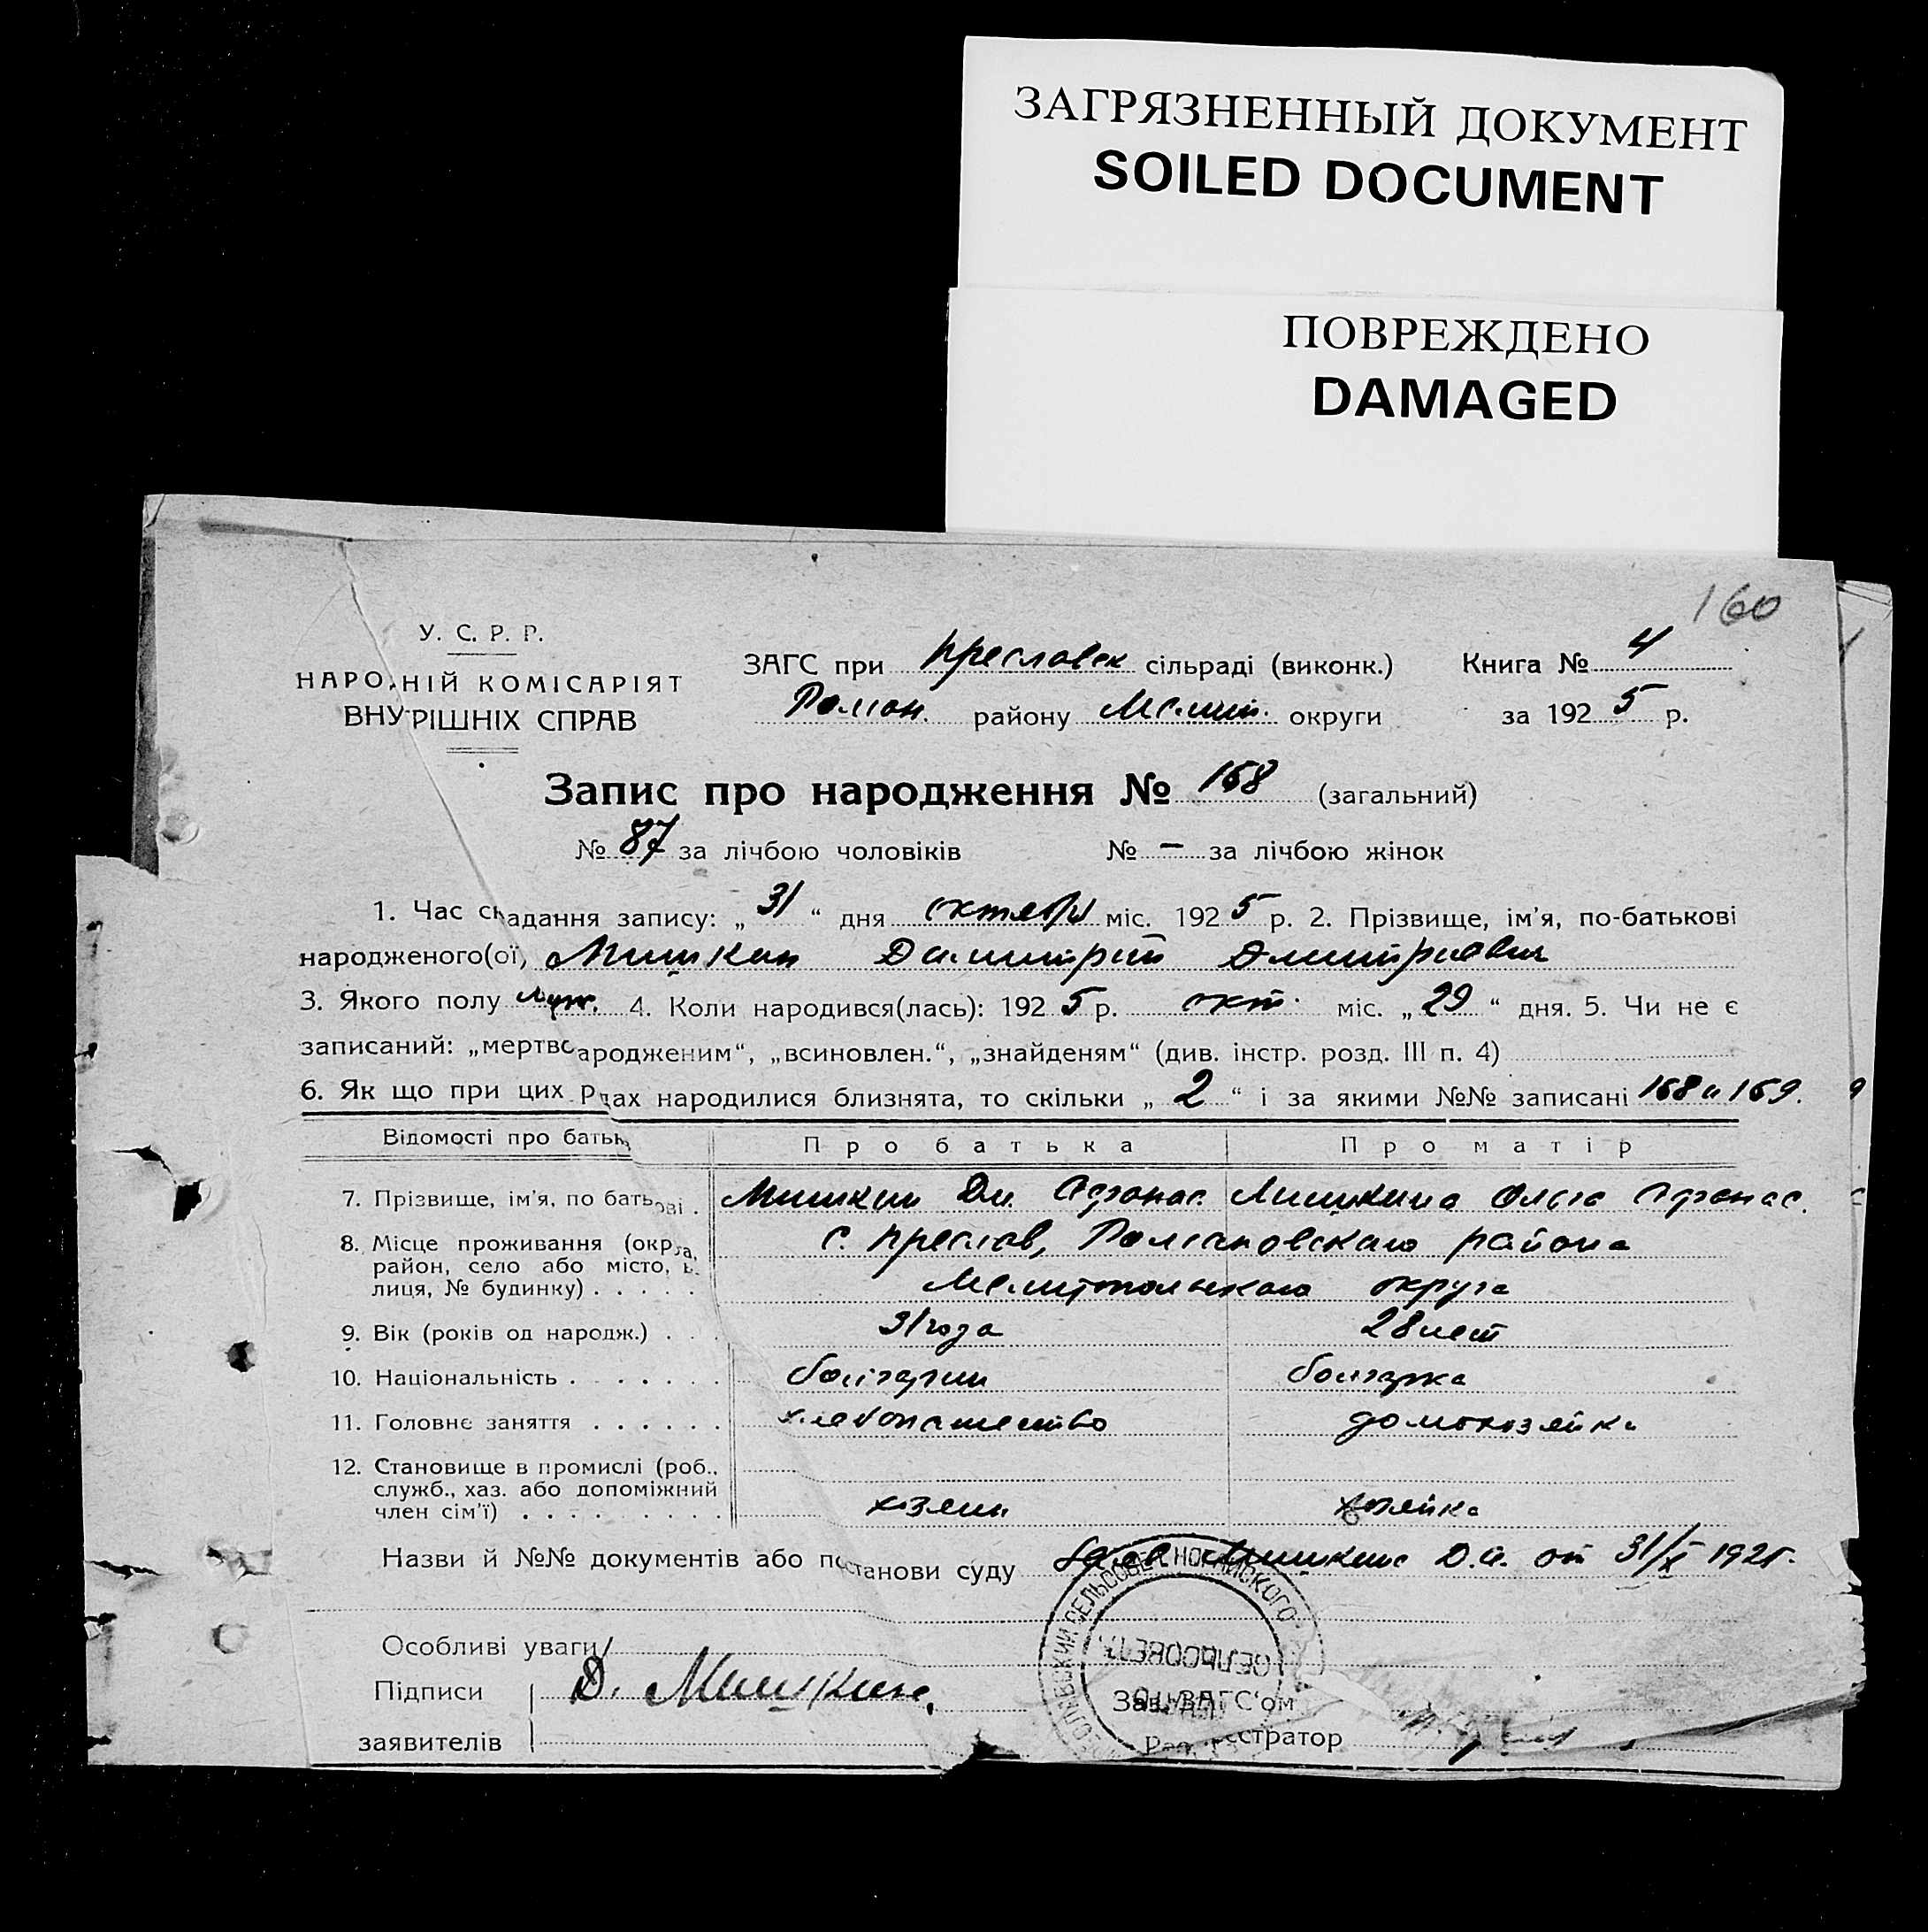 ЗАГРЯЗНЕННЫЙ ДОКУМЕНТ
SOILED DOCUMENT
ПОВРЕЖДЕНО
DAMAGED
160
У. С. Р. Р.
НАРОДНІЙ КОМІСАРІЯТ
ВНУТРІШНІХ СПРАВ
ЗАГС при преславск сільраді (виконк.)
Роман. району Мелит. округи
Книга № 4
за 1925 р.
Запис про народження № 168 (загальний)
№ 87 за лічбою чоловіків № – за лічбою жінок
1. Час складання запису: „31“ дня октября міс. 1925 р. 2. Прізвище, ім’я, по-батькові
народженого(ої) Мишкин Димитрий Дмитриевич
3. Якого полу муж. 4. Коли народився(лась): 1925 р. окт. міс. „29“ дня. 5. Чи не є
записаний: „мертвонародженим“, „всиновлен.“, „знайденям“ (див. інстр. розд. III п. 4)
6. Як що при цих родах народилися близнята, то скільки „2“ і за якими №№ записані 168 и 169.
Відомості про батьк Про батька Про матір
7. Прізвище, ім’я, по батькові . Мишкин Дм. Афонас. Мишкина Ольга Афонас.
8. Місце проживання (округа, с. преслав, Романовскаго района
район, село або місто, ву-
лиця, № будинку) . . . . . Мелитопольскаго округа
9. Вік (років од народж.) . . . 31 года 28 лет
10. Національність . . . . . . . болгарин болгарка
11. Головне заняття . . . . . . хлебопашество домохозяйка
12. Становище в промислі (роб.,
служб., хаз. або допоміжний
член сім’ї) . . . . . . . . . хозяин хозяйка
Назви й №№ документів або постанови суду Мишкина Д.А. от 31/X 1925г.
Особливі уваги
Підписи Д. Мишкин
заявителів
Зав. ЗАГС‘ом
Реєстратор
СЕЛЬСОВЕТ НОГАЙСКОГО
СЕЛЬСОВЕТ